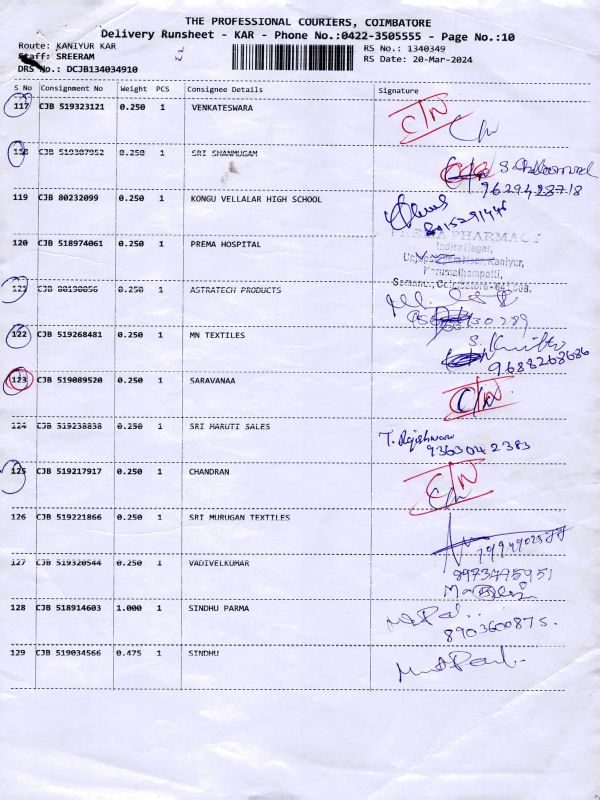 THE PROFESSIONAL COURIERS, COIMBATORE
Delivery Runsheet - KAR - Phone No.:0422-3505555 - Page No.:10
Route: KANIYUR KAR
RS No.: 1340349
Staff: SREERAM
RS Date: 20-Mar-2024
DRS No.: DCJB134034910
S No Consignment No Weight PCS Consignee Details Signature
117 CJB 519323121 0.250 1 VENKATESWARA C/N
C/N
118 CJB 519387952 0.250 1 SRI SHANMUGAM
9629428718
119 CJB 80232099 0.250 1 KONGU VELLALAR HIGH SCHOOL
120 CJB 518974061 0.250 1 PREMA HOSPITAL
PREMA PHARMACY
Indira Nagar,
Kaniyur,
Karumathampatti,
Coimbatore - 641 668.
121 0.250 1 ASTRATECH PRODUCTS
122 CJB 519268481 0.250 1 MN TEXTILES
9688268686
123 CJB 519089520 0.250 1 SARAVANAA C/N
124 CJB 519238838 0.250 1 SRI MARUTI SALES T. Rajeshwari
9363042383
125 CJB 519217917 0.250 1 CHANDRAN C/N
C/N
126 CJB 519221866 0.250 1 SRI MURUGAN TEXTILES
127 CJB 519320544 0.250 1 VADIVELKUMAR 8973495951
128 CJB 518914603 1.000 1 SINDHU PARMA
8903600875.
129 CJB 519034566 0.475 1 SINDHU